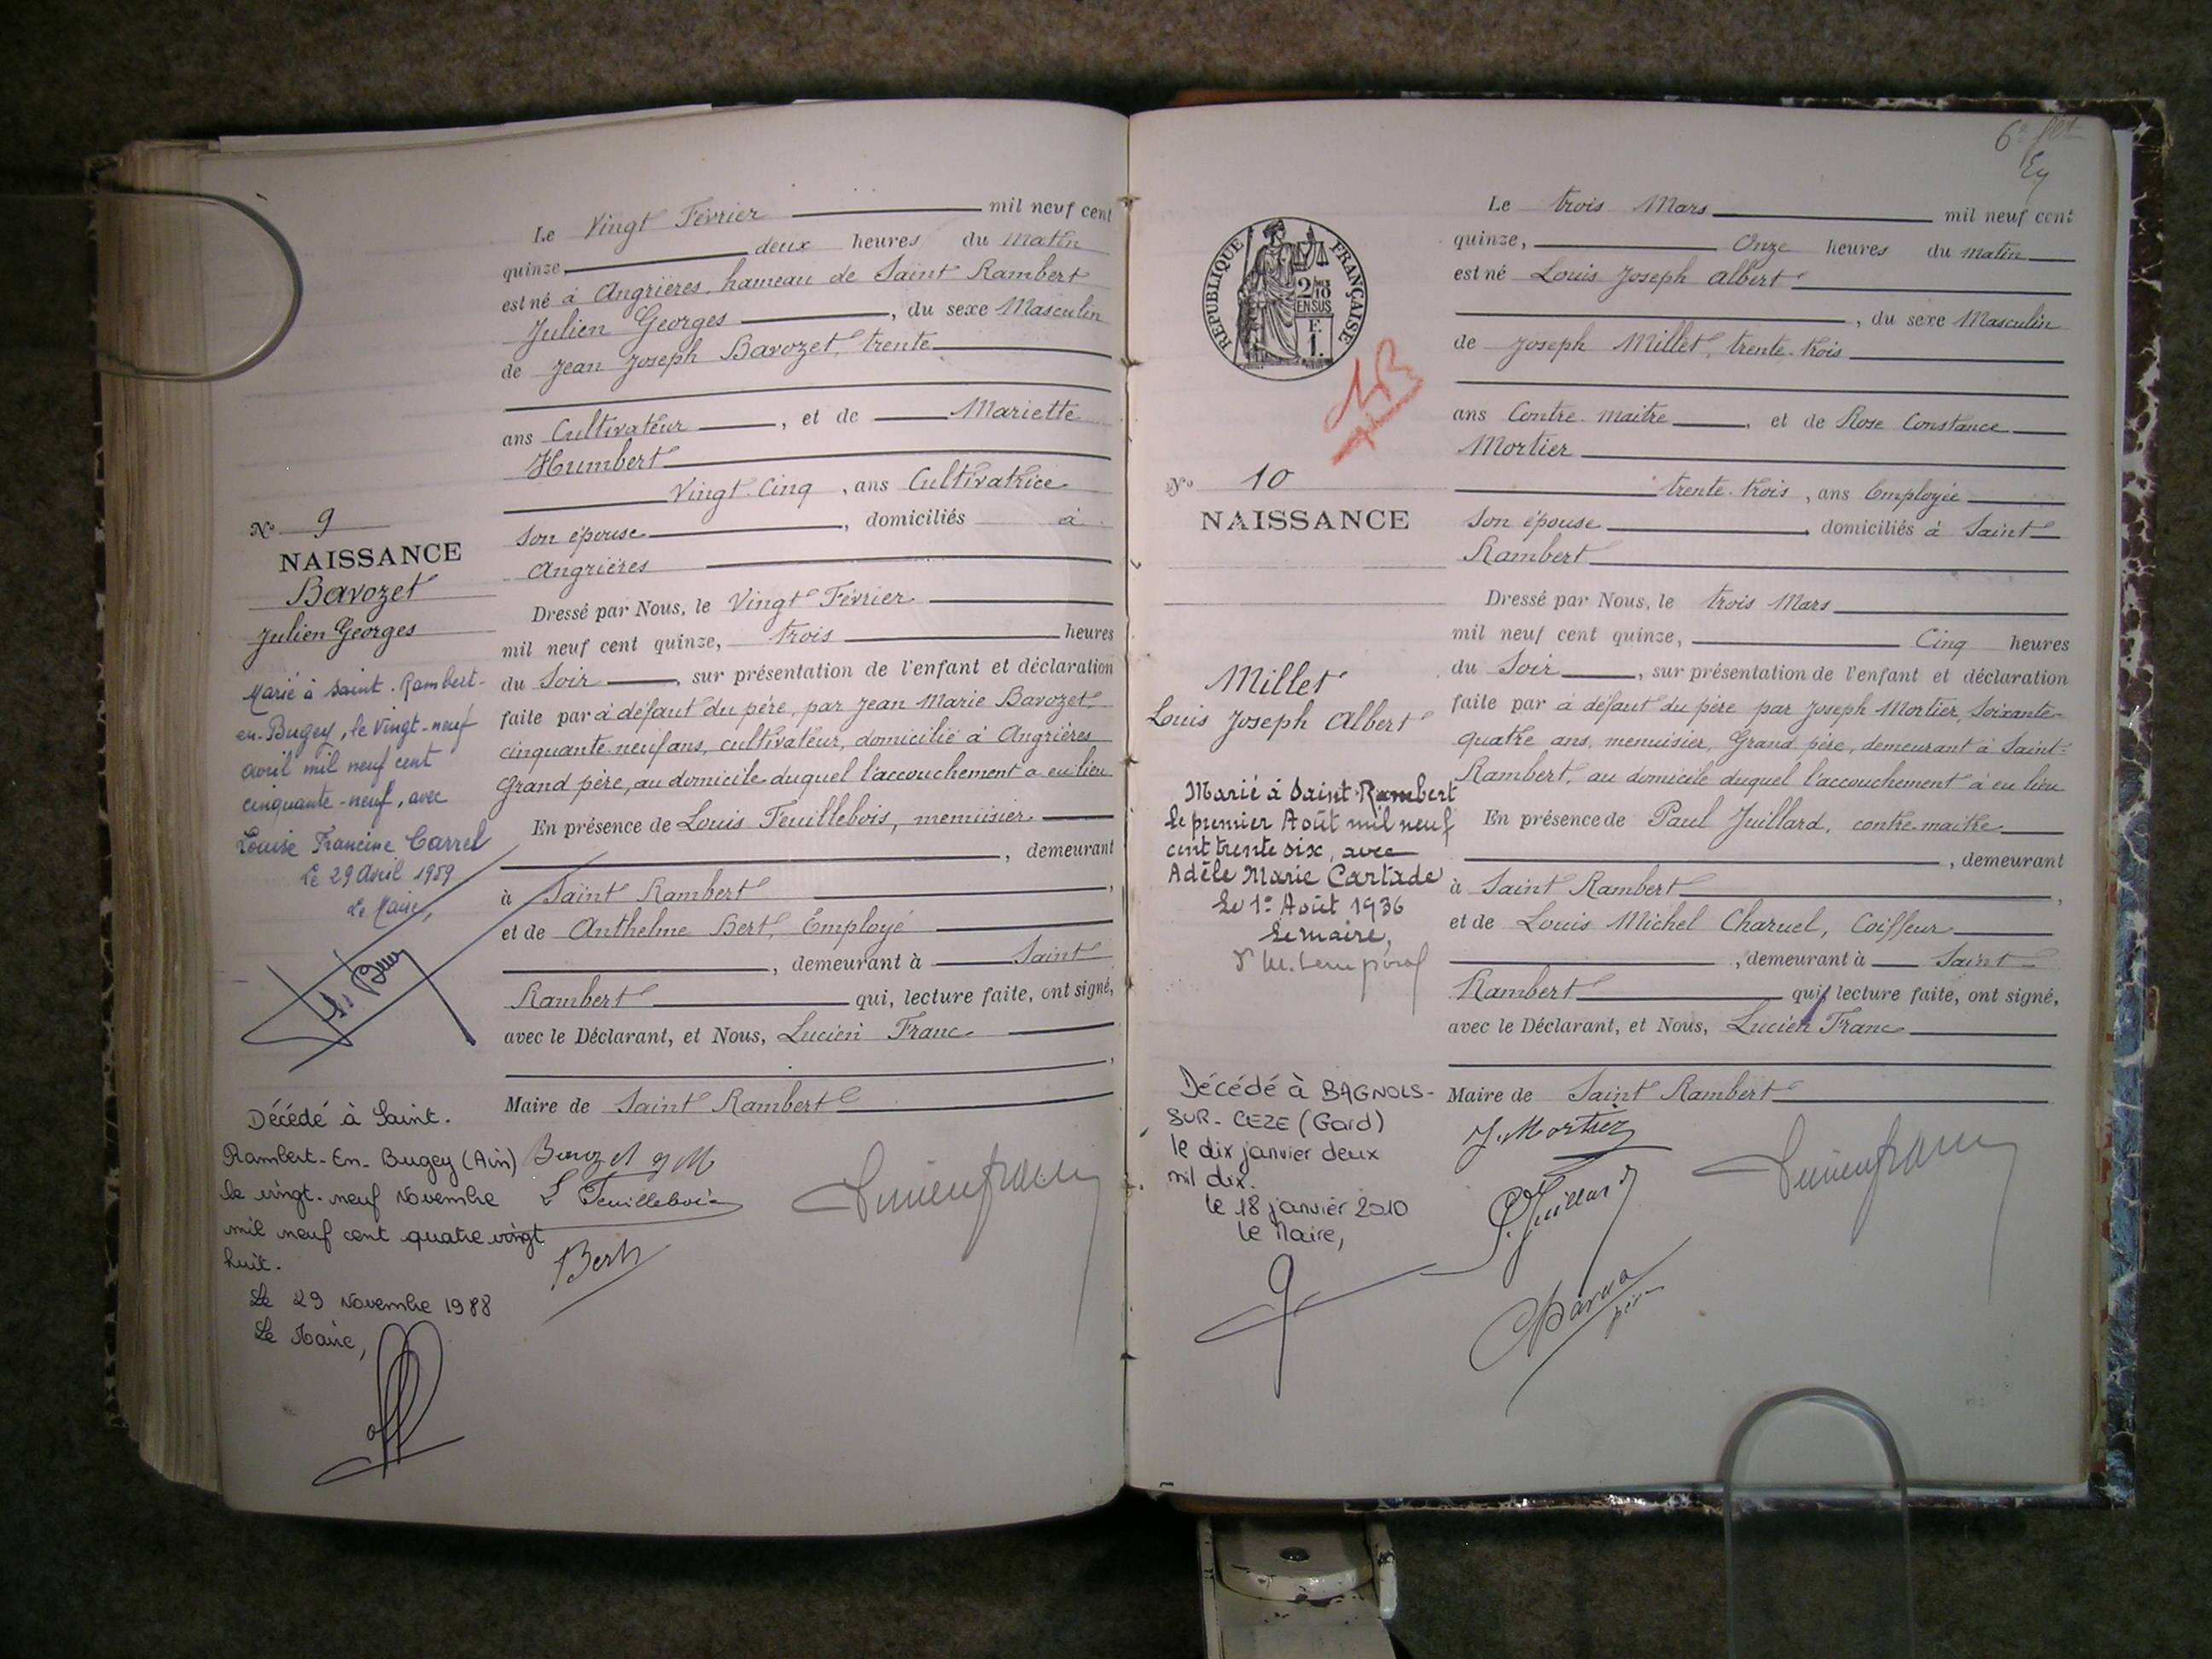 Le Vingt Février mil neuf cent
quinze, deux heures du matin
est né à Angrières, hameau de Saint Rambert
Julien Georges, du sexe Masculin
de Jean Joseph Bavozet, trente
ans Cultivateur, et de Mariette
Humbert
Vingt-Cinq, ans Cultivatrice
son épouse, domiciliés à
Angrières
Dressé par Nous, le Vingt Février
mil neuf cent quinze, trois heures
du Soir, sur présentation de l'enfant et déclaration
faite par à défaut du père, par Jean Marie Bavozet,
cinquante-neuf ans, cultivateur, domicilié à Angrières
Grand père, au domicile duquel l'accouchement a eu lieu
En présence de Louis Feuillebois, menuisier
, demeurant
à Saint Rambert,
et de Anthelme Bert, Employé
, demeurant à Saint
Rambert qui, lecture faite, ont signé,
avec le Déclarant, et Nous, Lucien Franc
,
Maire de Saint Rambert
L Feuillebois
Bert
N° 9
NAISSANCE
Bavozet
Julien Georges
Marié à Saint-Rambert-
en-Bugey, le vingt-neuf
avril mil neuf cent
cinquante-neuf, avec
Louise Francine Carrel
Le 29 Avril 1959
Le Maire,
Décédé à Saint-
Rambert-En-Bugey (Ain)
le vingt-neuf Novembre
mil neuf cent quatre vingt
huit.
Le 29 Novembre 1988
Le Maire,
6e
Le trois Mars mil neuf cent
quinze, Onze heures du matin
est né Louis Joseph Albert
, du sexe Masculin
de Joseph Millet, trente-trois
ans Contre-maitre, et de Rose Constance
Mortier
trente-trois, ans Employée
son épouse, domiciliés à Saint
Rambert
Dressé par Nous, le trois Mars
mil neuf cent quinze, Cinq heures
du Soir, sur présentation de l'enfant et déclaration
faite par à défaut du père par Joseph Mortier, soixante-
quatre ans, menuisier, Grand père, demeurant à Saint-
Rambert, au domicile duquel l'accouchement à eu lieu
En présence de Paul Juillard, contre-maitre
, demeurant
à Saint Rambert,
et de Louis Michel Charvel, Coiffeur
, demeurant à Saint
Rambert qui, lecture faite, ont signé,
avec le Déclarant, et Nous, Lucien Franc
Maire de Saint Rambert
J. Mortier
P. Juillard
RÉPUBLIQUE FRANÇAISE
2 10
EN SUS
F.
1.
N° 10
NAISSANCE
Millet
Louis Joseph Albert
Marié à Saint-Rambert
le premier Août mil neuf
cent trente six, avec
Adèle Marie Cartade
Le 1er Août 1936
Le maire,
Décédé à BAGNOLS-
SUR-CEZE (Gard)
le dix janvier deux
mil dix.
le 18 janvier 2010
Le Maire,